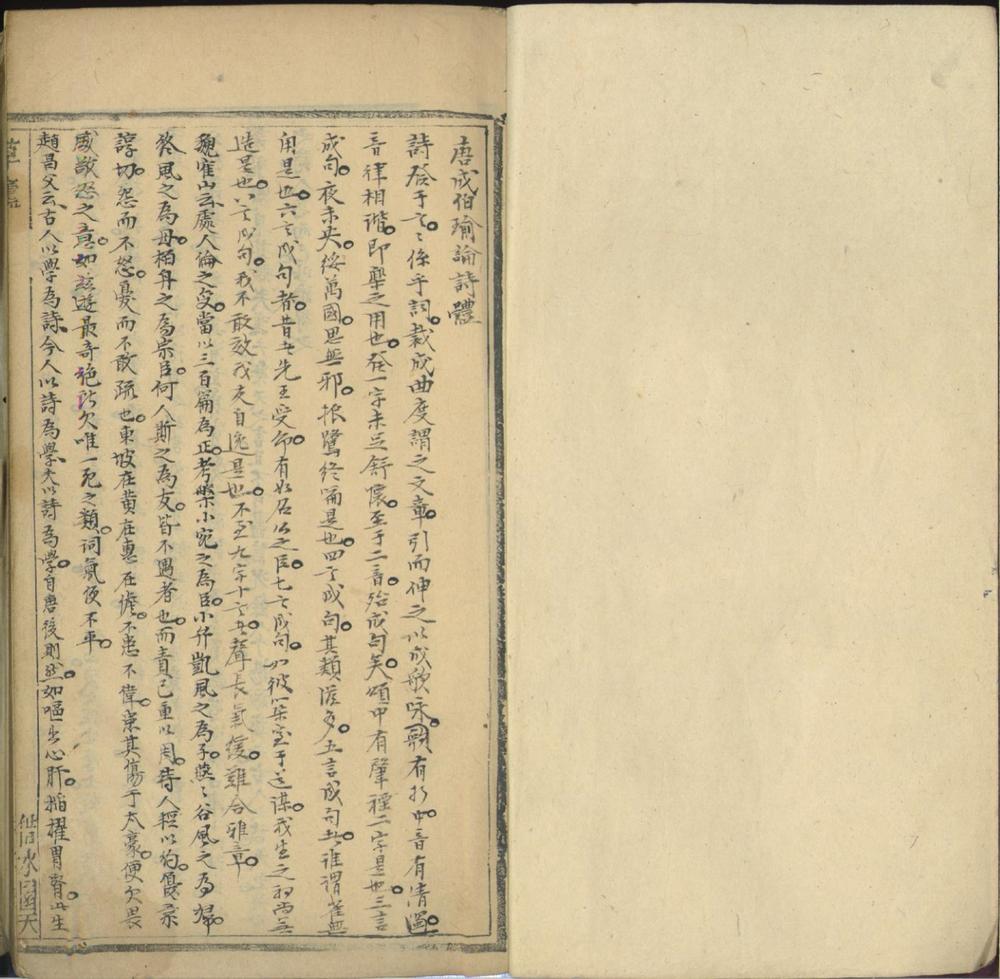 唐成伯瑜論詩體
詩發于言言係乎詞裁成曲度謂之文章引而伸之以成歌咏歌有折中音有清濁
音律相諧即樂之用也發一字未足舒懷至于二音殆成句矣頌中有肇禋二字是也三言
成句夜未央綏萬國思無邪振鷺終誦是也四言成句其類滋多五言成句者誰謂雀無
角是也六言成句者昔者先王受命有如召公之臣七言成句如彼築室于道謀我生之初尚無
造是也八言成句我不敢效我友自逸是也不至九字十言者聲長氣緩難合雅章
魏寉山云處人倫之變當以三百篇為正考槃小宛之為臣小弁凱風之為子燕〻谷風之為婦
終風之為母栢舟之為宗臣何人斯之為友皆不遇者也而責己重以周待人輕以約優柔
諄切怨而不怒憂而不敢疏也東坡在黄在惠在儋不患不偉患其傷于太豪便欠畏
威敬怒之意如兹遊最奇絶所欠唯一死之類詞氣便不平
趙昌父云古人以學為詩今人以詩為學夫以詩為學自唐後則然如嘔出心肝搯擢胃腎此生